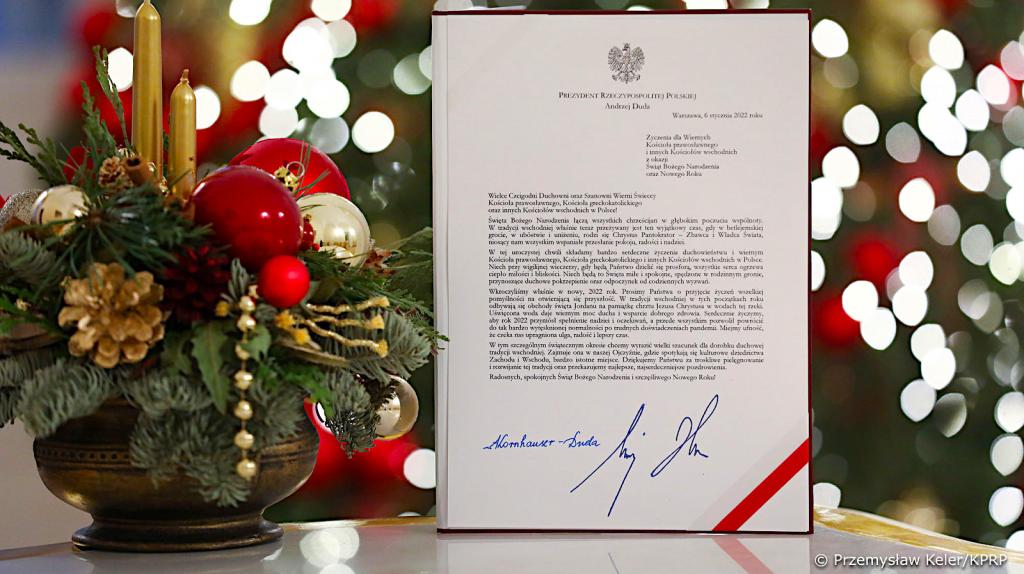 PREZYDENT RZECZYPOSPOLITEJ POLSKIEJ
Andrzej Duda
Warszawa, 6 stycznia 2022 roku
Życzenia dla Wiernych
Kościoła prawosławnego
i innych Kościołów wschodnich
z okazji
Świąt Bożego Narodzenia
oraz Nowego Roku
Wielce Czcigodni Duchowni oraz Szanowni Wierni Świeccy
Kościoła prawosławnego, Kościoła greckokatolickiego
oraz innych Kościołów wschodnich w Polsce!
Święta Bożego Narodzenia łączą wszystkich chrześcijan w głębokim poczuciu wspólnoty.
W tradycji wschodniej właśnie teraz przeżywany jest ten wyjątkowy czas, gdy w betlejemskiej
grocie, w ubóstwie i uniżeniu, rodzi się Chrystus Pantokrator – Zbawca i Władca Świata,
niosący nam wszystkim wspaniałe przesłanie pokoju, radości i nadziei.
W tej uroczystej chwili składamy bardzo serdeczne życzenia duchowieństwu i wiernym
Kościoła prawosławnego, Kościoła greckokatolickiego i innych Kościołów wschodnich w Polsce.
Niech przy wigilijnej wieczerzy, gdy będą Państwo dzielić się prosforą, wszystkie serca ogrzewa
ciepło miłości i bliskości. Niech będą to Święta miłe i spokojne, spędzone w rodzinnym gronie,
przynoszące duchowe pokrzepienie oraz odpoczynek od codziennych wyzwań.
Wkroczyliśmy właśnie w nowy, 2022 rok. Prosimy Państwa o przyjęcie życzeń wszelkiej
pomyślności na otwierającą się przyszłość. W tradycji wschodniej w tych początkach roku
odbywają się obchody święta Jordanu na pamiątkę chrztu Jezusa Chrystusa w wodach tej rzeki.
Uświęcona woda daje wiernym moc ducha i wsparcie dobrego zdrowia. Serdecznie życzymy,
aby rok 2022 przyniósł spełnienie nadziei i oczekiwań, a przede wszystkim pozwolił powrócić
do tak bardzo wytęsknionej normalności po trudnych doświadczeniach pandemii. Miejmy ufność,
że czeka nas upragniona ulga, radość i lepszy czas.
W tym szczególnym świątecznym okresie chcemy wyrazić wielki szacunek dla dorobku duchowej
tradycji wschodniej. Zajmuje ona w naszej Ojczyźnie, gdzie spotykają się kulturowe dziedzictwa
Zachodu i Wschodu, bardzo istotne miejsce. Dziękujemy Państwu za troskliwe pielęgnowanie
i rozwijanie tej tradycji oraz przekazujemy najlepsze, najserdeczniejsze pozdrowienia.
Radosnych, spokojnych Świąt Bożego Narodzenia i szczęśliwego Nowego Roku!
AKornhauser-Duda
© Przemysław Keler/KPRP